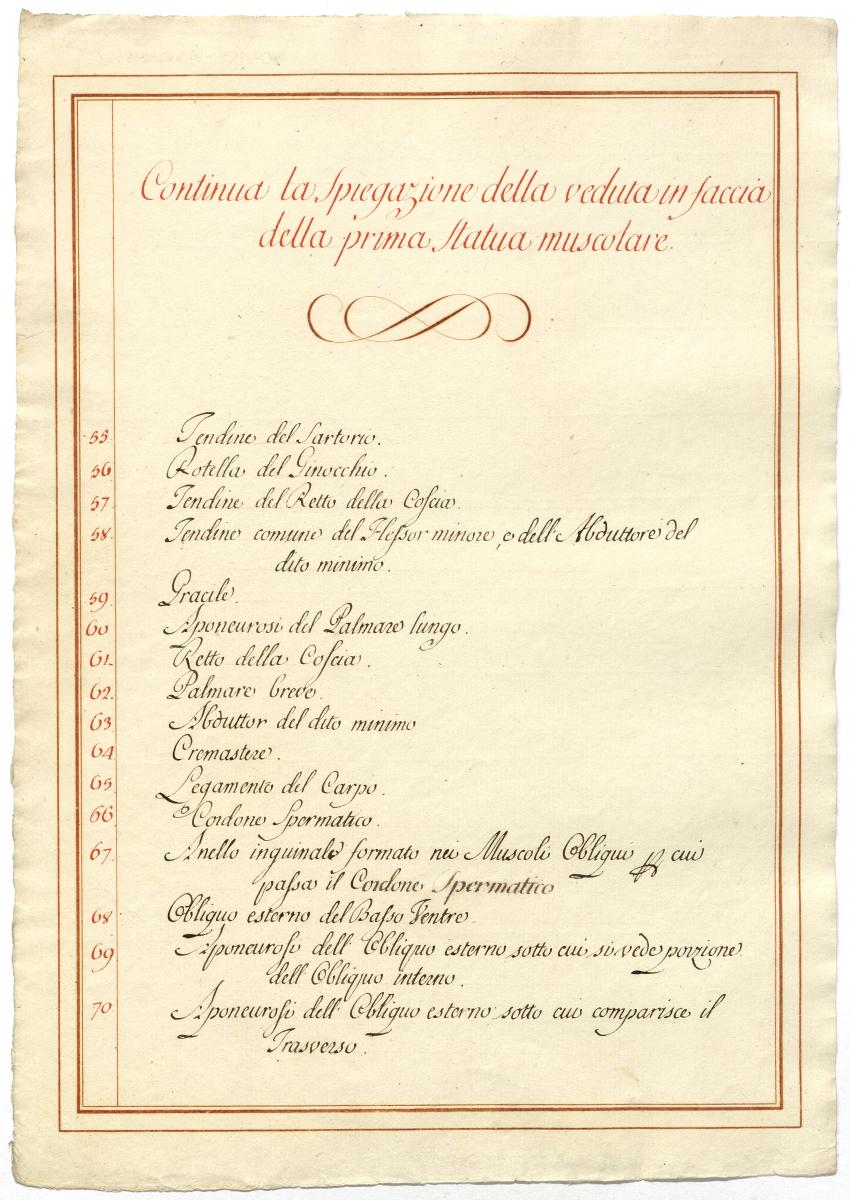 Continua la Spiegazione della veduta in faccia
della prima Statua muscolare.
55. Tendine del Sartorio.
56 Rotella del Ginocchio.
57. Tendine del Retto della Coscia.
58. Tendine comune del Flessor minore, e dell' Abduttore del
dito minimo.
59. Gracile.
60 Aponeurosi del Palmare lungo.
61. Retto della Coscia.
62. Palmare breve.
63 Abduttor del dito minimo
64 Cremastere.
65 Legamento del Carpo.
66 Cordone Spermatico.
67. Anello inguinale formato nei Muscoli Obliqui cui
passa il Cordone Spermatico
68 Obliquo esterno del Basso Ventre.
69 Aponeurosi dell' Obliquo esterno sotto cui si vede porzione
dell' Obliquo interno.
70 Aponeurosi dell' Obliquo esterno sotto cui comparisce il
Trasverso.